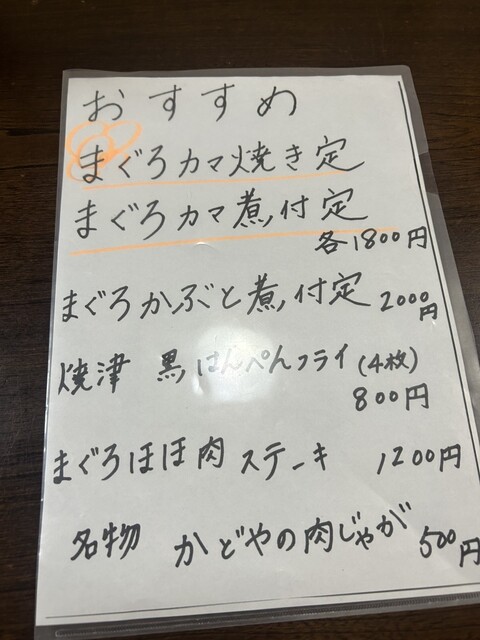 おすすめ
まぐろカマ焼き定
まぐろカマ煮付定
各1800円
まぐろかぶと煮付定 2000円
焼津 黒はんぺんフライ (4枚)
800円
まぐろほほ肉 ステーキ 1200円
名物 かどやの肉じゃが 500円